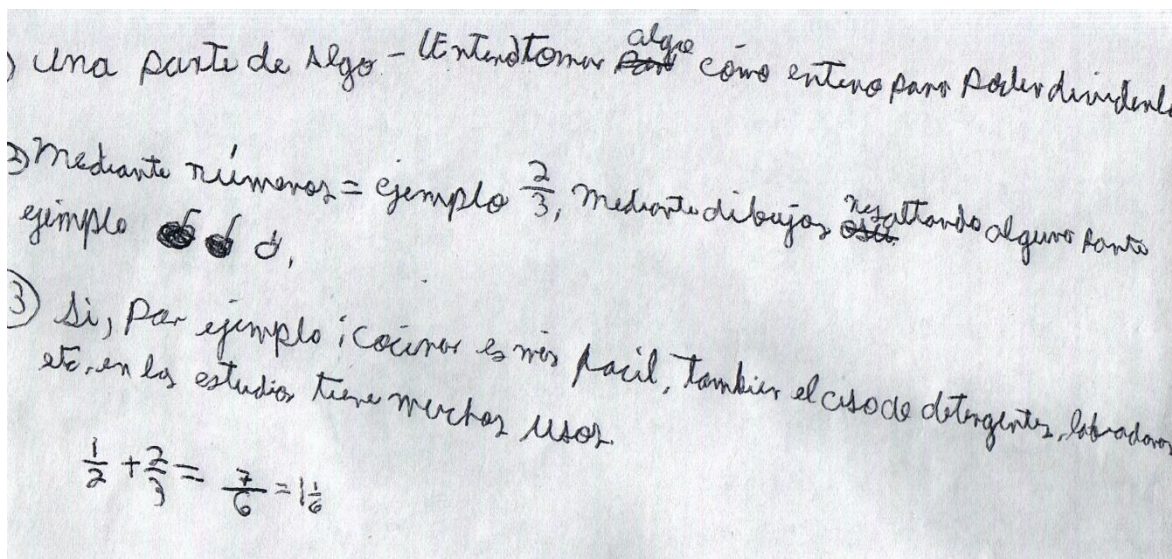 ) Una parte de Algo - tomar algo como entero para poder dividirlo
2) Mediante números = ejemplo 2/3, mediante dibujos resaltando alguna parte
ejemplo
3) Si, por ejemplo: cocinar es más facil, tambien el caso de detergentes, labadoras
etc, en los estudios tiene muchos usos.
1/2 + 2/3 = 7/6 = 1 1/6